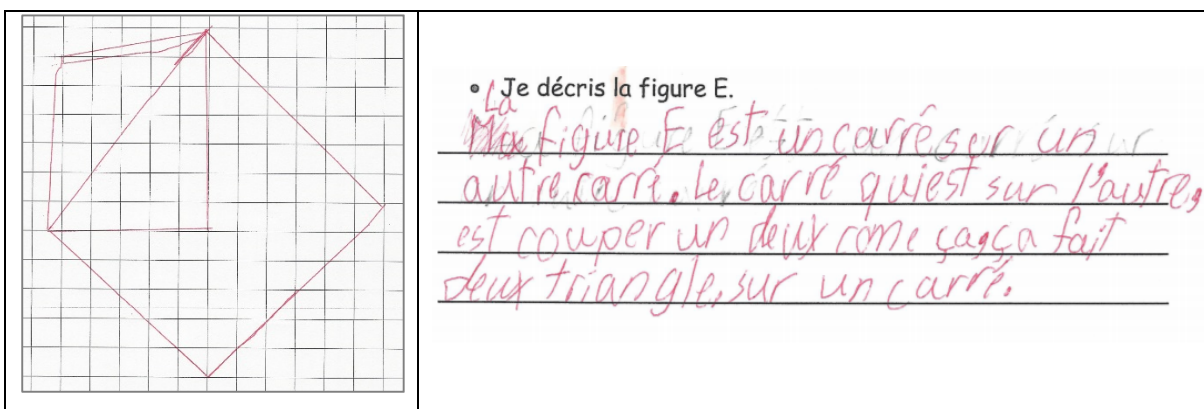 • Je décris la figure E.
La figure E est un carré sur un
autre carré. Le carré qui est sur l'autre,
est couper un deux come ça, ça fait
deux triangle, sur un carré.